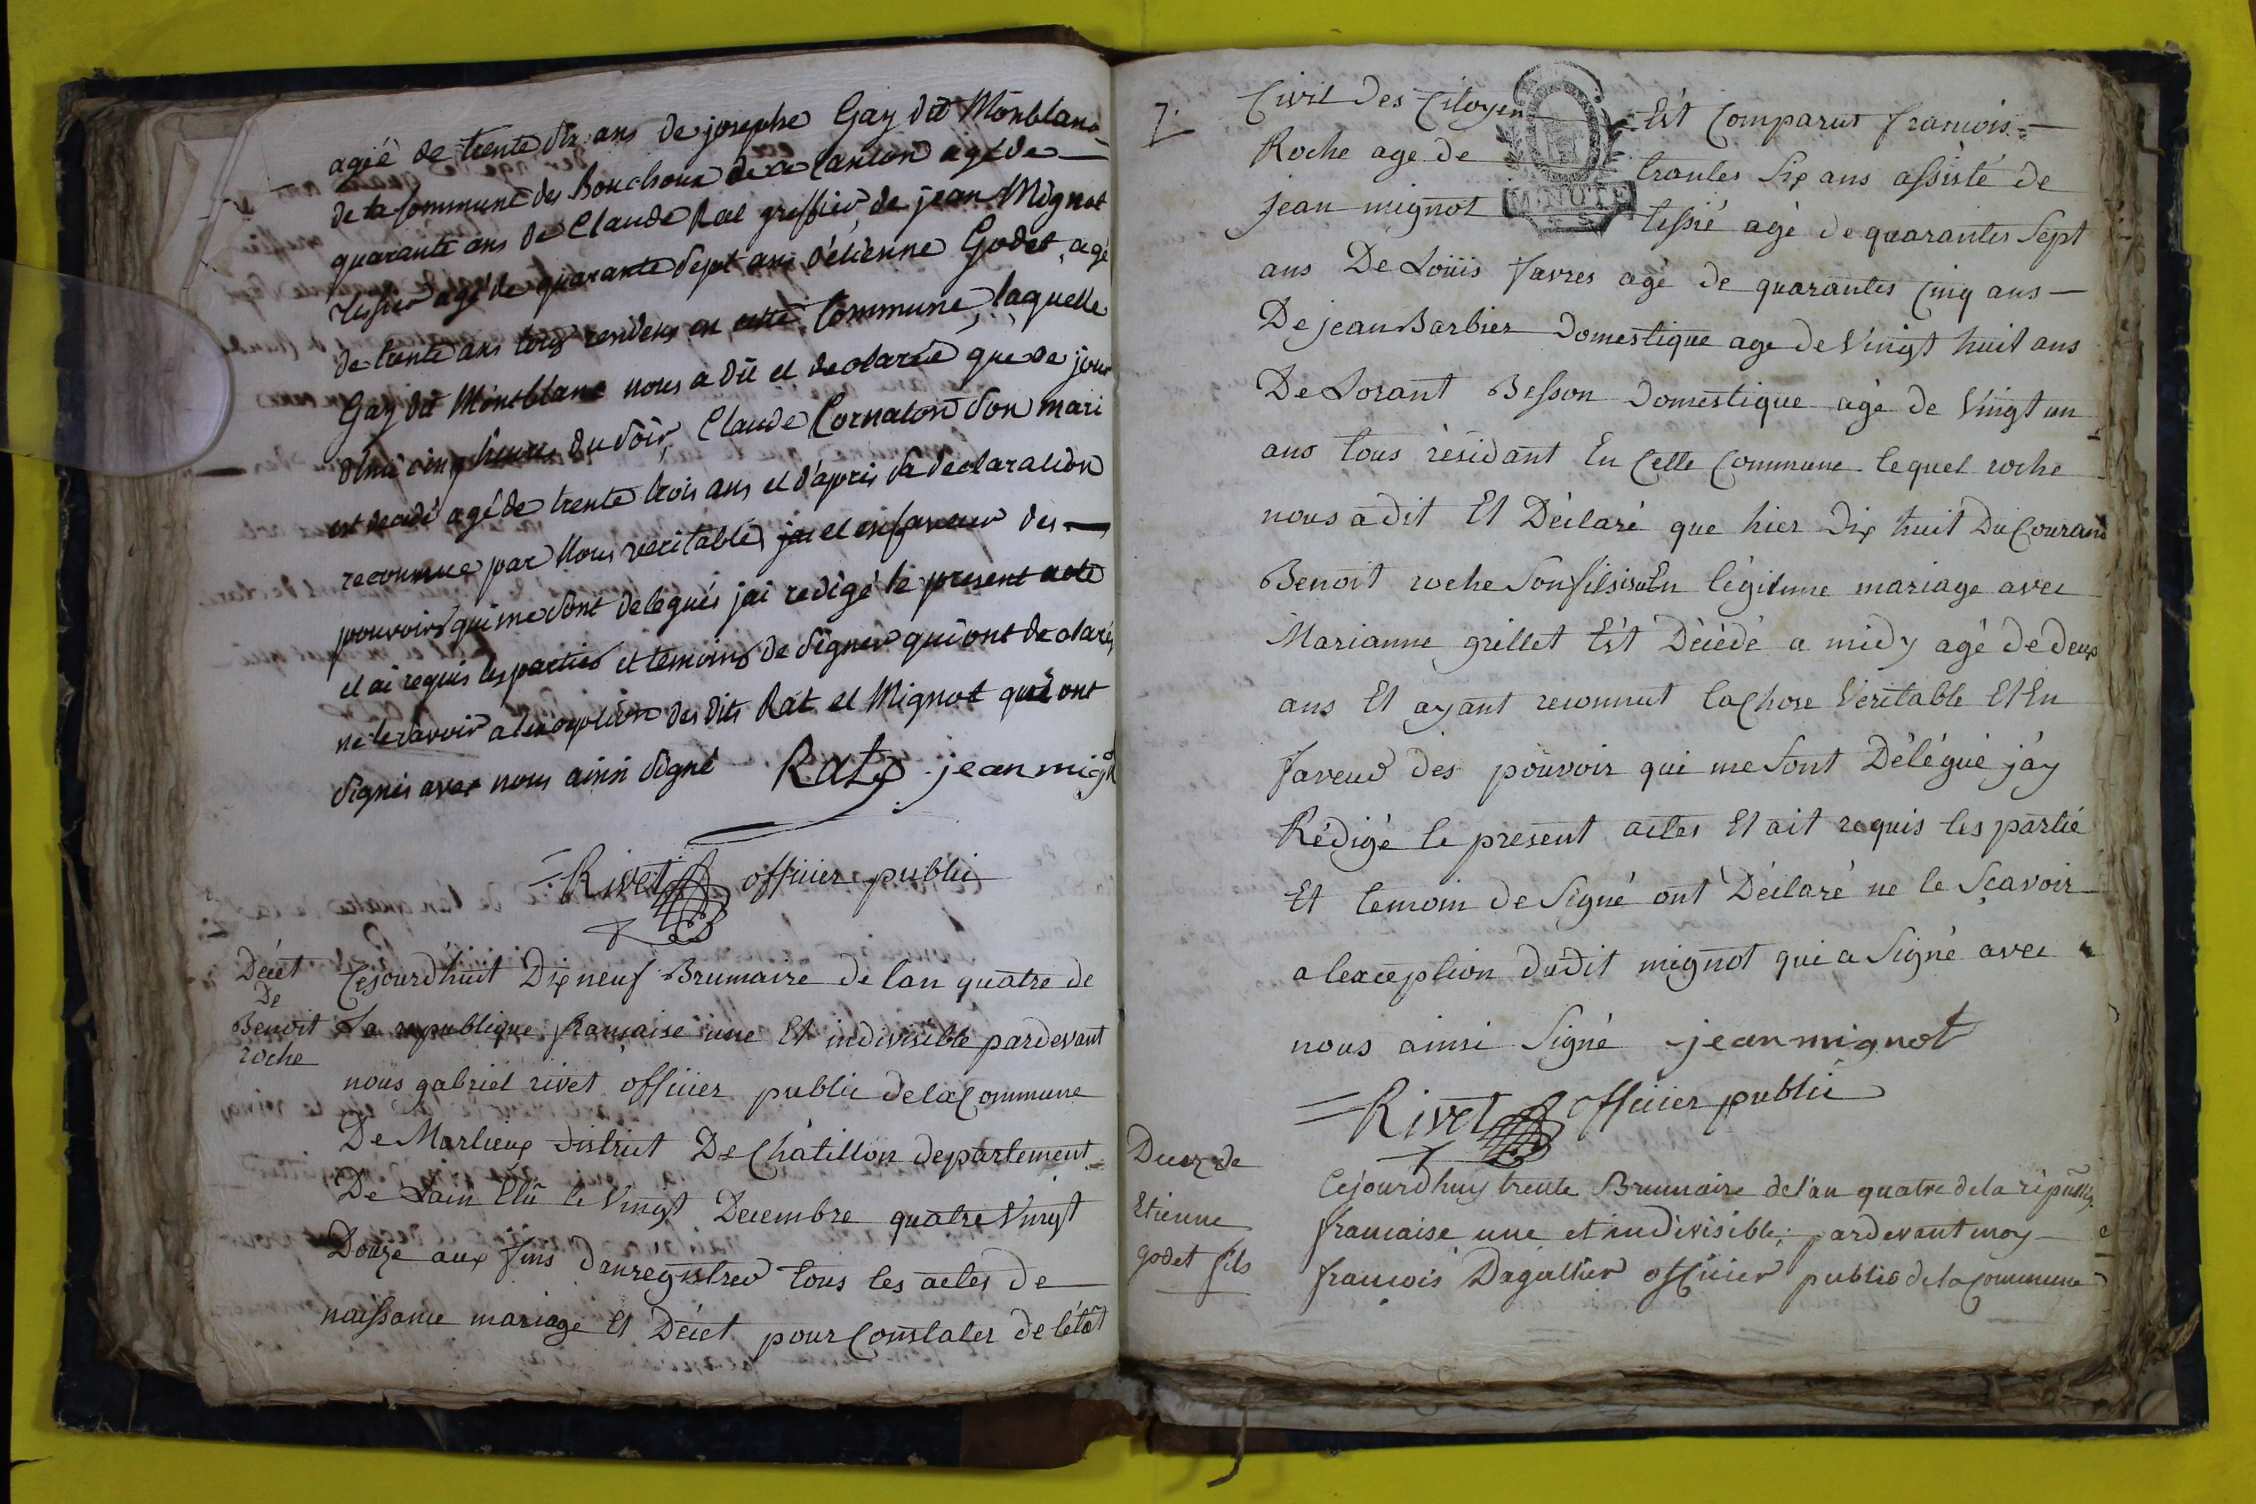 agée de trente six ans de josephe Gay dit Monblanc
de la Commune des Bouchoux de ce Canton agé de
quarante ans de Claude Rat greffier, de jean Mignot
tissier agé de quarante Sept ans d'étienne Godet, agé
de trente ans tous residens en cette Commune, laquelle
Gay dit Montblanc nous a dit et declarée que ce jour
d'hui cinq heures du Soir, Claude Cornaton Son mari
est decedé agé de trente trois ans et d'après sa declaration
reconnue par Nous veritable, et en faveur des
pouvoirs qui me Sont delegués j'ai redigé le present acte
et ai requis les parties et temoins de Signer qui ont declarés
ne le Savoir a l'exception des dits Rat et Mignot qui ont
Signés avec nous ainsi Signé Rat jean mignot
Rivet officier public
Décet
De
Benoit
roche
Cejourdhuit Dix neuf Brumaire de lan quatre de
La republique française une Et indivisible pardevant
nous gabriel rivet officier public de la Commune
De Marlieux District De Châtillon departement
De Lain Elû le Vingt Decembre quatre Vingt
Douze aux fins d'anregistrer tous les actes de
naissance mariage Et Décet pour Constater de létât
7.
Civil Des Citoyen Est Comparut francois
Roche age de trantes Six ans assisté de
jean mignot tissié agé de quarantes Sept
MINUTE
ans De Loüis favres agé de quarantes Cinq ans
De jean Barbier Domestique age de Vingt huit ans
De Lorant Besson Domestique agé de Vingt un
ans tous résidant En Cette Commune lequel roche
nous a dit Et Déclaré que hier Dix huit Du Courand
Benoit roche Son fils isu En légitime mariage avec
Marianne grillet Est Décédé a midy agé de deux
ans Et ayant reconnut la Chose Veritable Et En
faveur des pouvoir qui me Sont Délégué j'ay
Rédigé le present actes Et ait requis les partié
Et temoin de Signé ont Déclaré ne le Sçavoir
a lexception dudit mignot qui a Signé avec
nous ainsi Signé jean mignot
Rivet officier public
Decez de
Etienne
godet fils
Cejourdhuy trente Brumaire de l'an quatre de la répubq.
francaise une et indivisible, pardevant moy
francois Dagallier officier public de la Commune